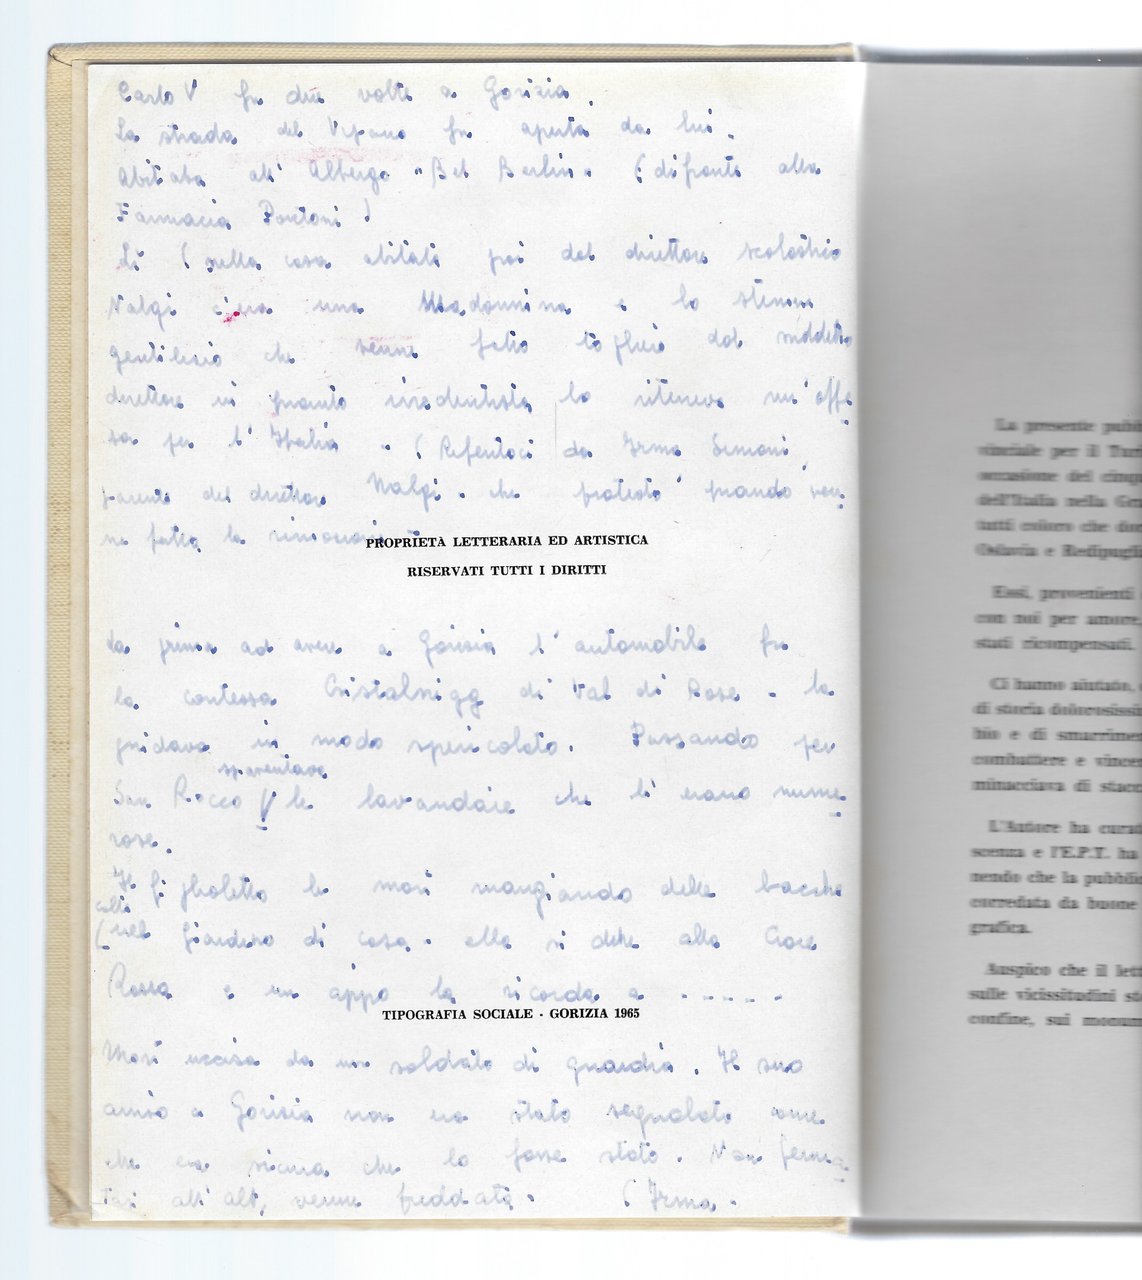 Carlo V fu due volte a Gorizia.
La strada del Vipaco fu aperta da lui.
Abitava all'Albergo "Bel Berlin" (difronte alla
Farmacia Pontoni)
Lì (nella casa abitata poi dal direttore scolastico
Nalgi c'era una Madonnina e lo stemma
gentilizio che venne fatto togliere dal suddetto
direttore in quanto irredentista lo riteneva un'offe
sa per l'Italia. (Riferitoci da Irma Simoni,
parente del direttore Nalgi. che protestò quando ven
ne fatta la rimozione
PROPRIETÀ LETTERARIA ED ARTISTICA
RISERVATI TUTTI I DIRITTI
La prima ad avere a Gorizia l'automobile fu
la contessa Cristalnigg di Val di Rose. la
guidava in modo spericolato. Passando per
spaventava
San Rocco le lavandaie che lì erano nume
rose.
Il figlioletto le morì mangiando delle bacche
nel giardino di casa. ella si dette alla Croce
Rossa e un cippo la ricorda a ......
TIPOGRAFIA SOCIALE - GORIZIA 1965
Morì uccisa da un soldato di guardia. Il suo
arrivo a Gorizia non era stato segnalato come
che era sicura che lo fosse stato. Non ferma
tasi all'alt, venne freddata. (Irma.
La presente pubb
vinciale per il Turi
occasione del cinqu
dell'Italia nella Gra
tutti coloro che dor
Oslavia e Redipugli
Essi, provenienti
con noi per amore,
stati ricompensati.
Ci hanno aiutato,
di storia dolorosissi
bio e di smarrimen
combattere e vincer
minacciava di stacc
L'Autore ha curat
scenza e l'E.P.T. ha
nendo che la pubblic
corredata da buone
grafica.
Auspico che il lett
sulle vicissitudini st
confine, sui monum